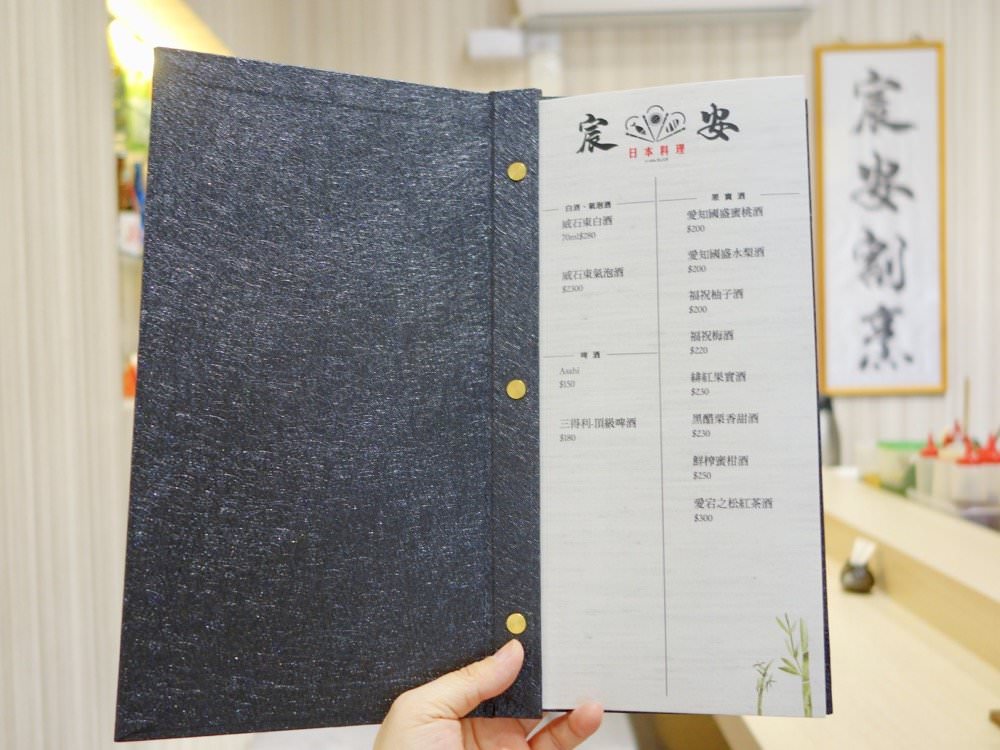 宸 安
日本料理
白酒、氣泡酒
威石東白酒
70ml$280
威石東氣泡酒
$2300
啤酒
Asahi
$150
三得利-頂級啤酒
$180
果實酒
愛知國盛蜜桃酒
$200
愛知國盛水梨酒
$200
福祝柚子酒
$200
福祝梅酒
$220
緋紅果實酒
$230
黑醋栗香甜酒
$230
鮮榨蜜柑酒
$250
愛宕之松紅茶酒
$300
宸安割烹